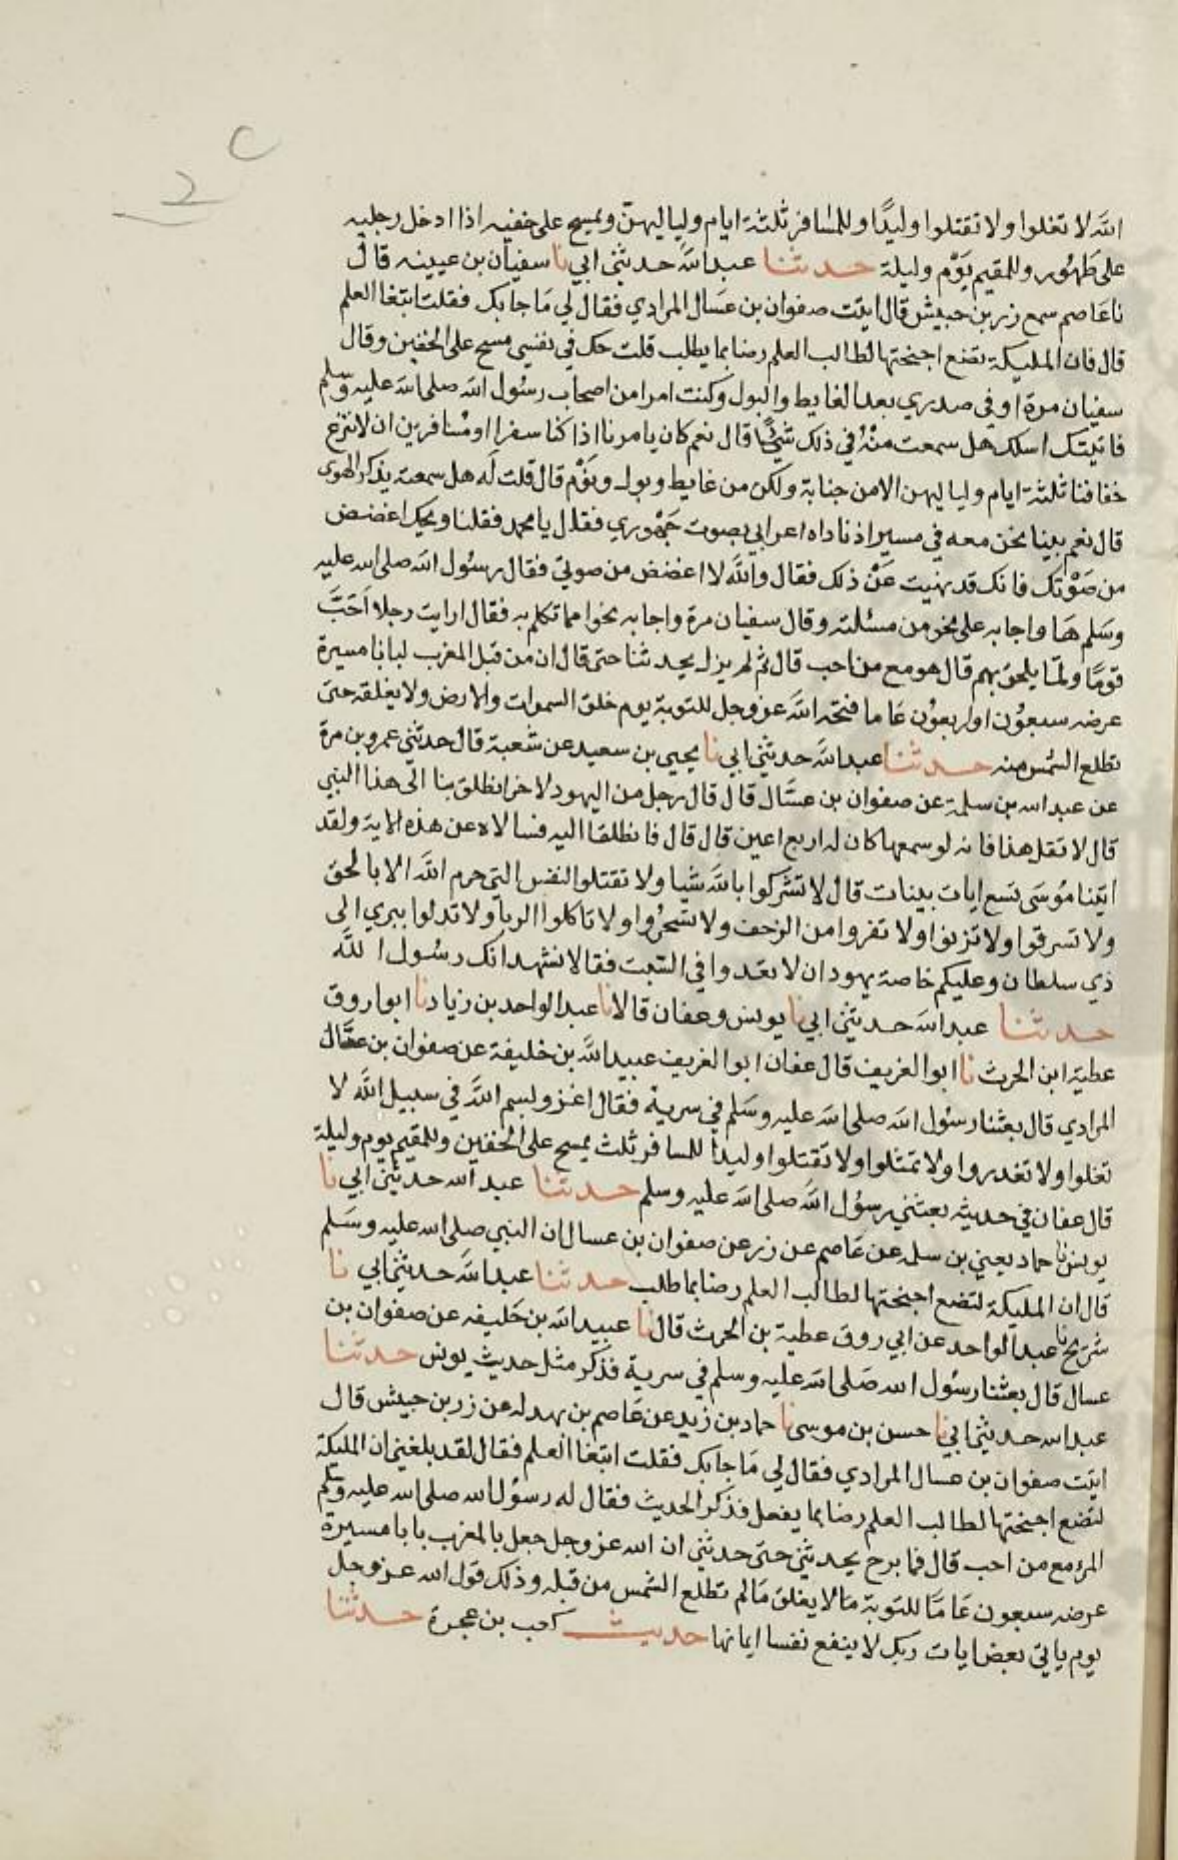 2
الله لا تغلوا ولا تقتلوا وليدًا وللمسافر ثلثة ايام ولياليهن ويمسح على خفيه اذا ادخل رجليه
على طهور وللمقيم يوم وليلة حدثنا عبدالله حدثني ابي نا سفيان بن عيينه قال
نا عاصم سمع زر بن حبيش قال اتيت صفوان بن عسال المرادي فقال لي ما جا بك فقلت ابتغا العلم
قال فان المليكة تضع اجنحتها لطالب العلم رضا بما يطلب قلت حك في نفسي مسح على الخفين وقال
سفيان مرة او في صدري بعد الغايط والبول وكنت امرا من اصحاب رسول الله صلى الله عليه وسلم
فاتيتك اسلك هل سمعت منه في ذلك شيًا قال نعم كان يامرنا اذا كنا سفرا او مسافرين ان لا ننزع
خفافنا ثلثة ايام ولياليهن الا من جنابة ولكن من غايط وبول ونوم قال قلت له هل سمعته يذكر الهوى
قال نعم بينا نحن معه في مسير اذ ناداه اعرابي بصوت جهوري فقال يا محمد فقلنا ويحك اغضض
من صوتك فانك قد نهيت عن ذلك فقال والله لا اغضض من صوتي فقال رسول الله صلى الله عليه
وسلم ها واجابه على نحو من مسئلته وقال سفيان مرة واجابه نحوا مما تكلم به فقال ارايت رجلا احب
قومًا ولما يلحق بهم قال هو مع من احب قال ثم لم يزل يحدثنا حتى قال ان من قبل المغرب لبابا مسيرة
عرضه سبعون او اربعون عاما فتحه الله عز وجل للتوبة يوم خلق السموات والارض ولا يغلقه حتى
تطلع الشمس منه حدثنا عبدالله حدثني ابي نا يحيى بن سعيد عن شعبة قال حدثني عمرو بن مرة
عن عبد الله بن سلمة عن صفوان بن عسال قال قال رجل من اليهود لاخر انطلق بنا الى هذا النبي
قال لا تقل هذا فانه لو سمعها كان له اربع اعين قال قال فانطلقا اليه فسالاه عن هذه الاية ولقد
اتينا موسى تسع ايات بينات قال لا تشركوا بالله شيا ولا تقتلوا النفس التي حرم الله الا بالحق
ولا تسرقوا ولا تزنوا ولا تفروا من الزحف ولا تسحروا ولا تاكلوا الربا ولا تدلوا ببري الى
ذي سلطان وعليكم خاصة يهود ان لا تعدوا في السبت فقالا نشهد انك رسول الله
حدثنا عبدالله حدثني ابي نا يونس وعفان قالا نا عبدالواحد بن زياد نا ابو اروق
عطية ابن الحرث نا ابو الغريف قال عفان ابو الغريف عبيد الله بن خليفة عن صفوان بن عسال
المرادي قال بعثنا رسول الله صلى الله عليه وسلم في سرية فقال اغزو بسم الله في سبيل الله لا
تغلوا ولا تغدروا ولا تمثلوا ولا تقتلوا وليدا للمسافر ثلث يمسح على الخفين وللمقيم يوم وليلة
قال عفان في حديثه بعثني رسول الله صلى الله عليه وسلم حدثنا عبد الله حدثني ابي نا
يونس نا حماد يعني بن سلمه عن عاصم عن زر عن صفوان بن عسال ان النبي صلى الله عليه وسلم
قال ان المليكة لتضع اجنحتها لطالب العلم رضا بما طلب حدثنا عبدالله حدثني ابي نا
شريح نا عبدالواحد عن ابي روق عطية بن الحرث قال نا عبيد الله بن خليفه عن صفوان بن
عسال قال بعثنا رسول الله صلى الله عليه وسلم في سرية فذكر مثل حديث يونس حدثنا
عبدالله حدثني ابي نا حسن بن موسى نا حماد بن زيد عن عاصم بن بهدله عن زر بن حبيش قال
اتيت صفوان بن عسال المرادي فقال لي ما جا بك فقلت ابتغا العلم فقال لقد بلغني ان المليكة
لتضع اجنحتها لطالب العلم رضا بما يفعل فذكر الحديث فقال له رسول الله صلى الله عليه وسلم
المرء مع من احب قال فما برح يحدثني حتى حدثني ان الله عز وجل جعل بالمغرب بابا مسيرة
عرضه سبعون عامًا للتوبة ما لا يغلق ما لم تطلع الشمس من قبله وذلك قول الله عز وجل
يوم ياتي بعض ايات ربك لا ينفع نفسا ايمانها حديث كعب بن عجرة حدثنا